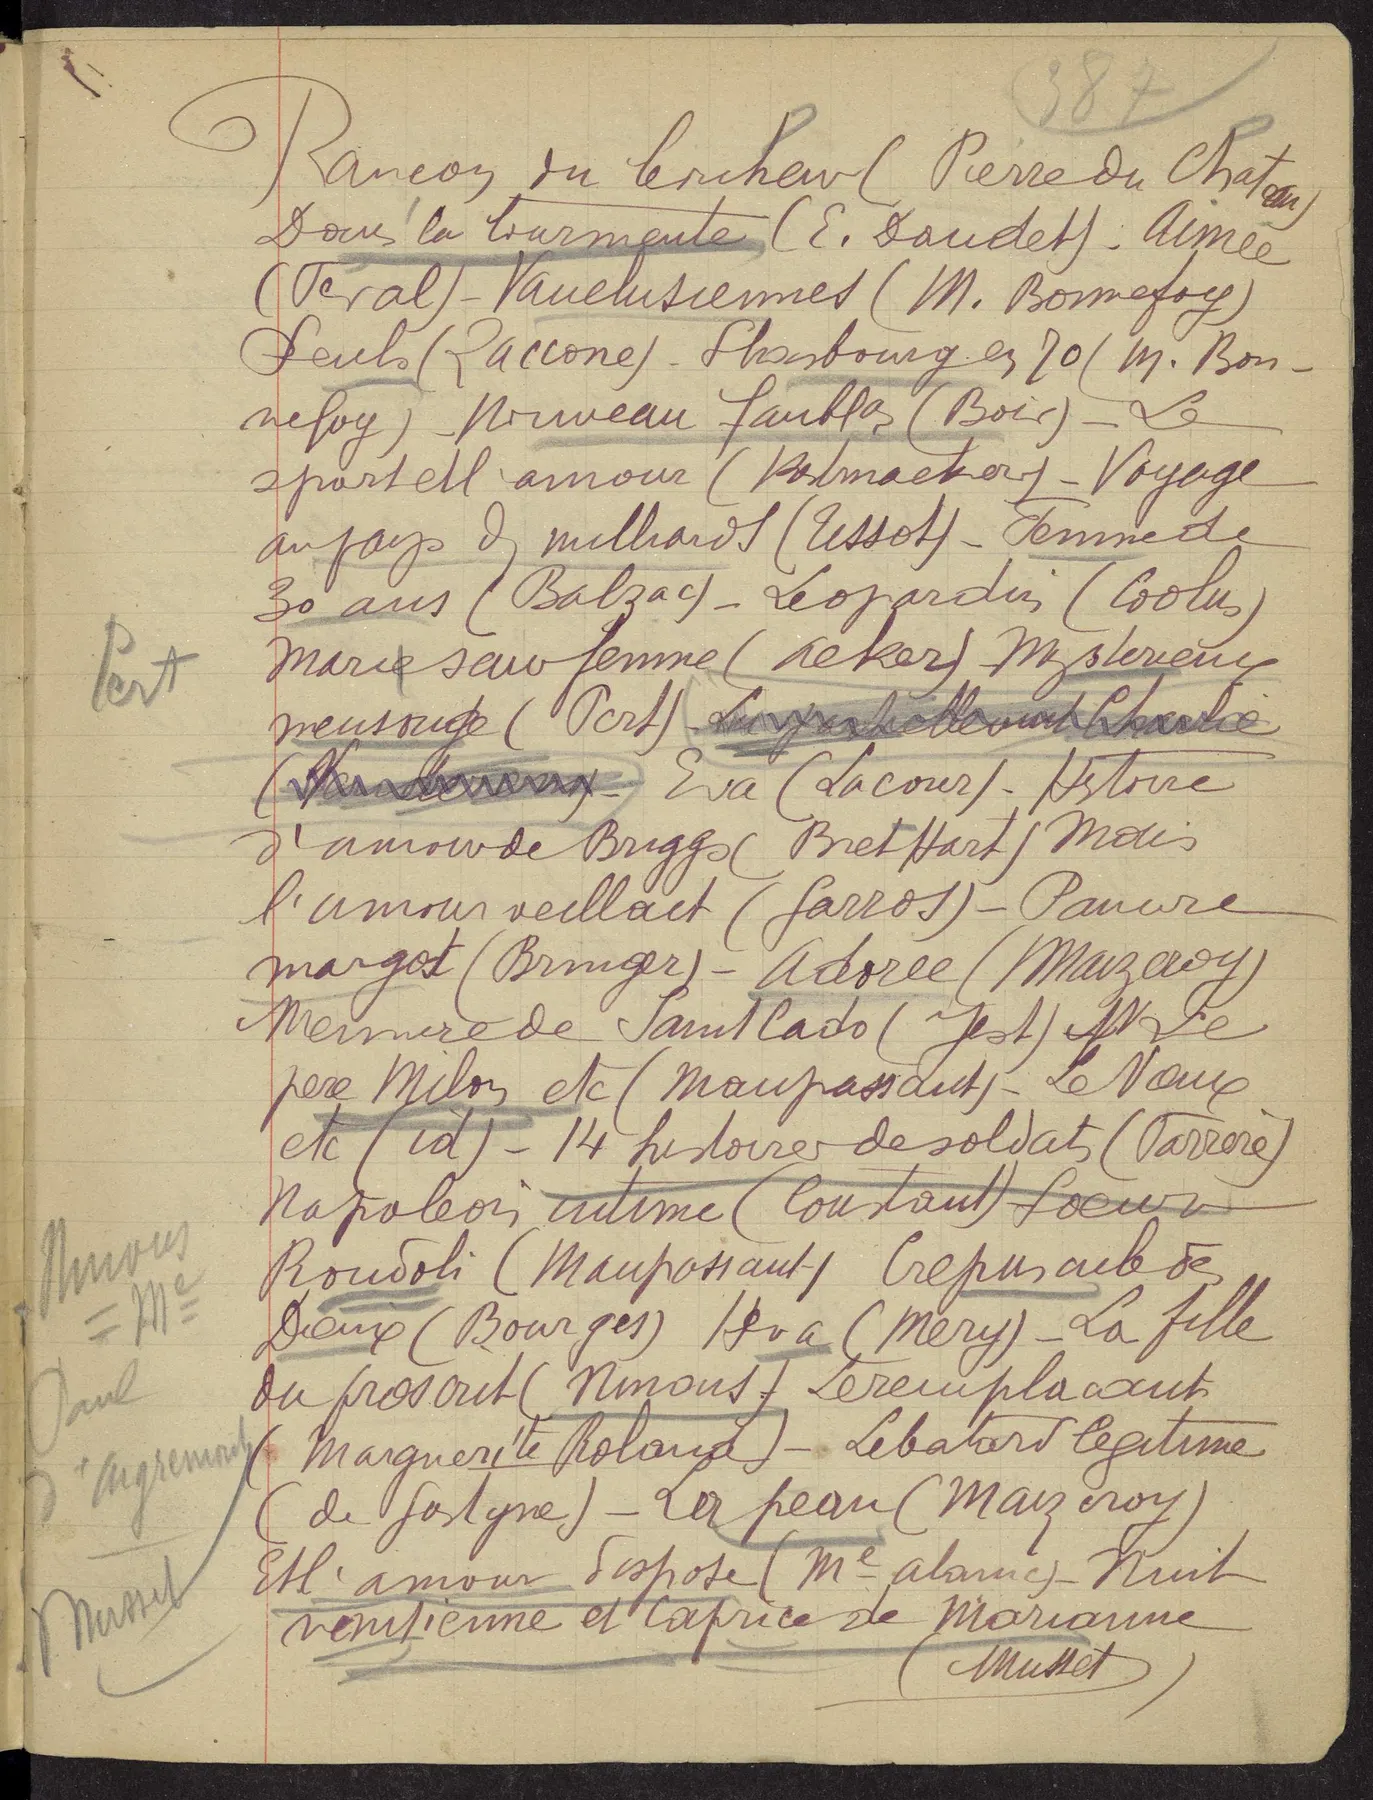 387
Rançon du bonheur (Pierre du Chateau)
Dans la tourmente (E. Daudet) - Aimée
(Féval) - Vauclusiennes (M. Bonnefoy)
Seuls (Zaccone) - Strasbourg en 70 (M. Bon-
nefoy) - Nouveau faublas (Bois) - Le
sport et l'amour (Kistmaekers) - Voyage
au pays des milliards (Tissot) - Femme de
30 ans (Balzac) - Leopardin (Coolus)
Pert
Marie sans femme (Acker) Mystérieux
mensonge (Pert) -
Eva (Lacour) - Histoire
d'amour de Briggs (Bret Hart) Mais
l'amour veillait (Garros) - Pauvre
margot (Bringer) - Adorée (Maizeroy)
de Saint Cado (Gest) Le
père Milon etc (Maupassant) - Le Vieux
etc (id) - 14 histoires de soldats (Farrère)
Napoléon intime (Constant) Soeurs
Rondoli (Maupassant) Crepuscule des
Ninous
= Me
Dieux (Bourges) Héva (Mery) - La fille
du président (Ninous) Le remplacant
Paul
d'Aigremont
(Marguerite Roland) - Le batard légitime
(de Gastyne) - La peau (Maizeroy)
Musset
Et l'amour dispose (Me alanic) - Nuit
venitienne et Caprice de Marianne
(Musset)